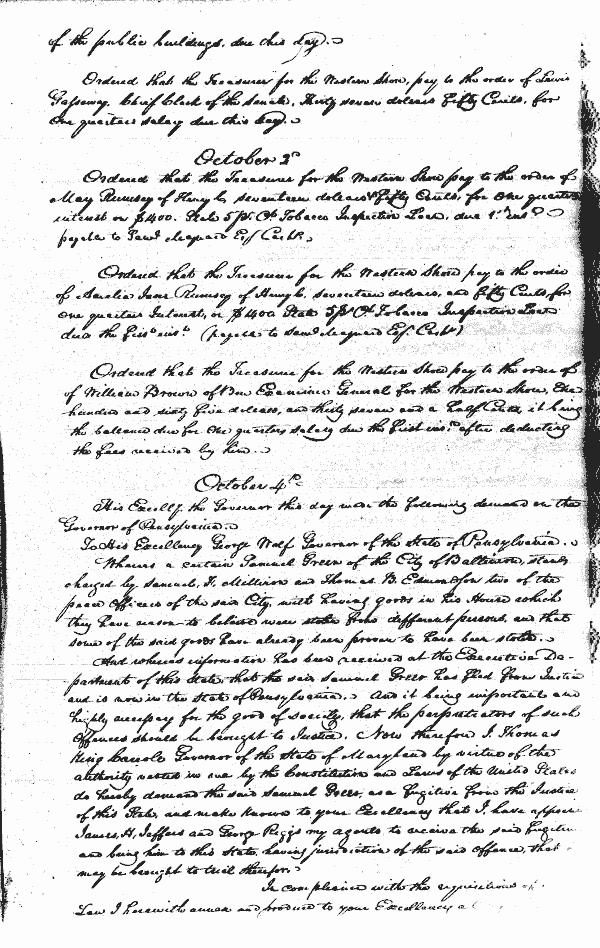 of the public buildings, due this day.
Ordered that the Treasurer for the Western Shore, pay to the order of Lewis
Gassaway, Chief Clerk of the Senate, Thirty seven dollars Fifty Cents, for
One quarters salary due this day.
October 2d
Ordered that the Treasurer for the Western Shore pay to the order of
May Rumsey of Henry, seventeen dollars & Fifty Cents, for One quarters
interest on $400. State 5 pr. Ct Tobacco Inspection Loan, due 1st inst
payable to Saml Esq Cashr.
Ordered that the Treasurer for the Western Shore pay to the order
of Amelia Jane Rumsey of Henry, seventeen dollars, and fifty Cents, for
One quarters Interest, on $400 State 5 pr Ct Tobacco Inspection Loan
due the first inst. (payable to Saml Esq. Cashr)
Ordered that the Treasurer for the Western Shore pay to the order of
of William Brown of Ben Examiner General for the Western Shore, One
hundred and sixty five dollars, and thirty seven and a half Cents, it being
the ballance due for One quarters salary due the first inst. after deducting
the fees received by him.
October 4th
His Excelly. the Governor this day made the following demand on the
Governor of Pensylvania.
To His Excellency George Wolf Governor of the State of Pensylvania.
Whereas a certain Samuel Green of the City of Baltimore, stands
charged by Samuel, H. Milliron and Thomas B. Edmondson two of the
peace Officers of the said City, with having goods in his House which
they have reason to believe were stolen from different persons, and that
some of the said goods have already been proven to have been stolen.
And whereas information has been received at the Executive De-
partment of this State, that the said Samuel Green has fled from Justice
and is now in the State of Pensylvania. And it being important and
highly necessary for the good of society, that the perpetrators of such
Offences should be brought to Justice. Now therefore I, Thomas
King Carroll Governor of the State of Maryland by virtue of the
authority vested in me by the Constitution and Laws of the United States
do hereby demand the said Samuel Green, as a fugitive from the Justice
of this State, and make known to your Excellency that I have appoin
James, H, Jeffers and George Riggs my agents to receive the said fugitive
and bring him to this State, having jurisdiction of the said Offence, that
may be brought to trial therefor.
In compliance with the requisitions of
Law I herewith annex and produce to your Excellency a